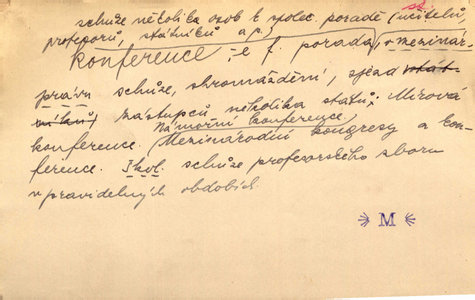 schůze několika osob k společ. poradě (učitelů,
profesorů, státníků a p.)
Konference, -e f. porada, v mezinár.
právu schůze, shromáždění, sjezd
zástupců několika států; Mírová
Námořní konference
konference. Mezinárodní kongresy a kon-
ference. Škol. schůze profesorského sboru
v pravidelných obdobích.
M